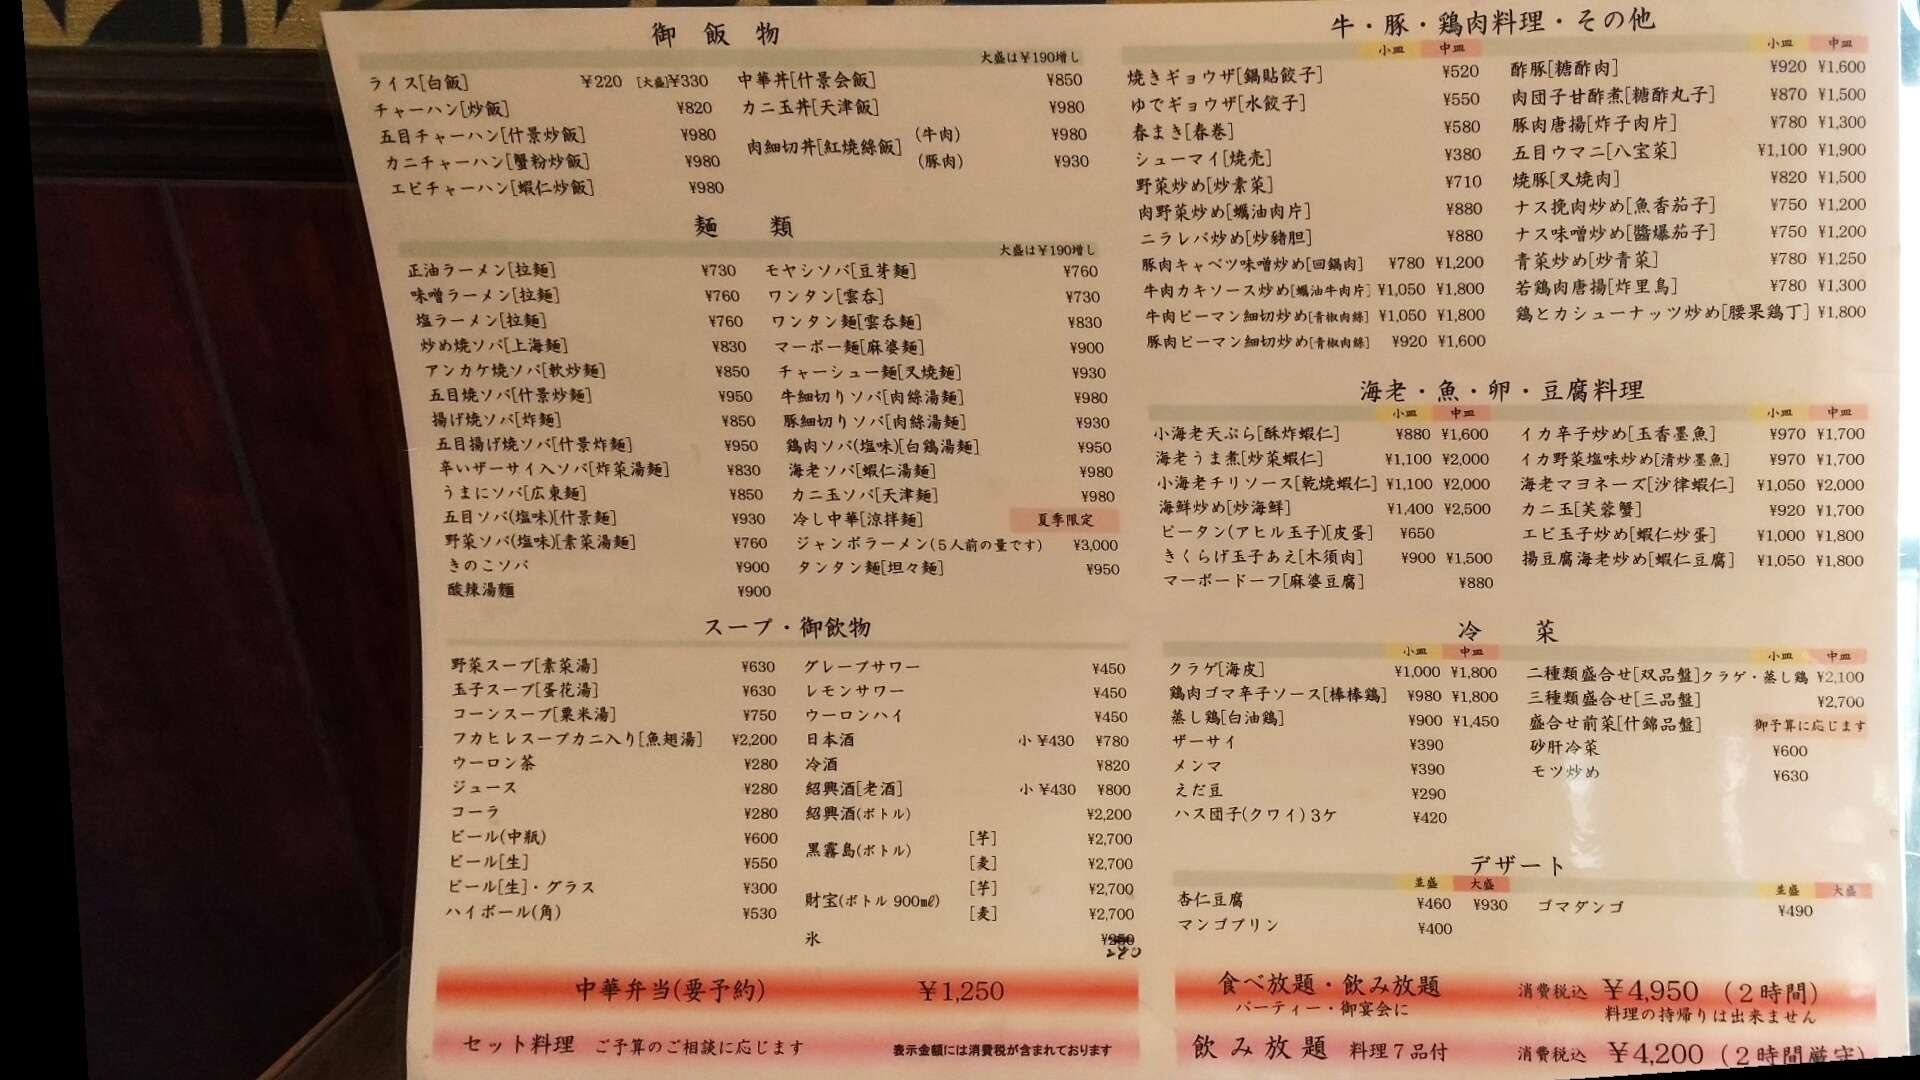 御飯物
大盛は¥190増し
ライス[白飯] ¥220 [大盛]¥330
チャーハン[炒飯] ¥820
五目チャーハン[什景炒飯] ¥980
カニチャーハン[蟹粉炒飯] ¥980
エビチャーハン[蝦仁炒飯] ¥980
中華丼[什景会飯] ¥850
カニ玉丼[天津飯] ¥980
肉細切丼[紅焼絲飯] (牛肉) ¥980
(豚肉) ¥930
麺類
大盛は¥190増し
正油ラーメン[拉麺] ¥730
味噌ラーメン[拉麺] ¥760
塩ラーメン[拉麺] ¥760
炒め焼ソバ[上海麺] ¥830
アンカケ焼ソバ[軟炒麺] ¥850
五目焼ソバ[什景炒麺] ¥950
揚げ焼ソバ[炸麺] ¥850
五目揚げ焼ソバ[什景炸麺] ¥950
辛いザーサイ入ソバ[炸菜湯麺] ¥830
うまにソバ[広東麺] ¥850
五目ソバ(塩味)[什景麺] ¥930
野菜ソバ(塩味)[素菜湯麺] ¥760
きのこソバ ¥900
酸辣湯麺 ¥900
モヤシソバ[豆芽麺] ¥760
ワンタン[雲呑] ¥730
ワンタン麺[雲呑麺] ¥830
マーボー麺[麻婆麺] ¥900
チャーシュー麺[叉焼麺] ¥930
牛細切りソバ[肉絲湯麺] ¥980
豚細切りソバ[肉絲湯麺] ¥930
鶏肉ソバ(塩味)[白鶏湯麺] ¥950
海老ソバ[蝦仁湯麺] ¥980
カニ玉ソバ[天津麺] ¥980
冷し中華[涼拌麺] 夏季限定
ジャンボラーメン(5人前の量です) ¥3,000
タンタン麺[坦々麺] ¥950
スープ・御飲物
野菜スープ[素菜湯] ¥630
玉子スープ[蛋花湯] ¥630
コーンスープ[粟米湯] ¥750
フカヒレスープカニ入り[魚翅湯] ¥2,200
ウーロン茶 ¥280
ジュース ¥280
コーラ ¥280
ビール(中瓶) ¥600
ビール[生] ¥550
ビール[生]・グラス ¥300
ハイボール(角) ¥530
グレープサワー ¥450
レモンサワー ¥450
ウーロンハイ ¥450
日本酒 小 ¥430 ¥780
冷酒 ¥820
紹興酒[老酒] 小 ¥430 ¥800
紹興酒(ボトル) ¥2,200
黒霧島(ボトル) [芋] ¥2,700
[麦] ¥2,700
財宝(ボトル 900㎖) [芋] ¥2,700
[麦] ¥2,700
氷
中華弁当(要予約) ¥1,250
セット料理 ご予算のご相談に応じます 表示金額には消費税が含まれております
牛・豚・鶏肉料理・その他
小皿 中皿
焼きギョウザ[鍋貼餃子] ¥520
ゆでギョウザ[水餃子] ¥550
春まき[春巻] ¥580
シューマイ[焼売] ¥380
野菜炒め[炒素菜] ¥710
肉野菜炒め[蠣油肉片] ¥880
ニラレバ炒め[炒豬胆] ¥880
豚肉キャベツ味噌炒め[回鍋肉] ¥780 ¥1,200
牛肉カキソース炒め[蠣油牛肉片] ¥1,050 ¥1,800
牛肉ピーマン細切炒め[青椒肉絲] ¥1,050 ¥1,800
豚肉ピーマン細切炒め[青椒肉絲] ¥920 ¥1,600
小皿 中皿
酢豚[糖酢肉] ¥920 ¥1,600
肉団子甘酢煮[糖酢丸子] ¥870 ¥1,500
豚肉唐揚[炸子肉片] ¥780 ¥1,300
五目ウマニ[八宝菜] ¥1,100 ¥1,900
焼豚[叉焼肉] ¥820 ¥1,500
ナス挽肉炒め[魚香茄子] ¥750 ¥1,200
ナス味噌炒め[醬爆茄子] ¥750 ¥1,200
青菜炒め[炒青菜] ¥780 ¥1,250
若鶏肉唐揚[炸里鳥] ¥780 ¥1,300
鶏とカシューナッツ炒め[腰果鶏丁] ¥1,800
海老・魚・卵・豆腐料理
小皿 中皿
小海老天ぷら[酥炸蝦仁] ¥880 ¥1,600
海老うま煮[炒菜蝦仁] ¥1,100 ¥2,000
小海老チリソース[乾焼蝦仁] ¥1,100 ¥2,000
海鮮炒め[炒海鮮] ¥1,400 ¥2,500
ピータン(アヒル玉子)[皮蛋] ¥650
きくらげ玉子あえ[木須肉] ¥900 ¥1,500
マーボードーフ[麻婆豆腐] ¥880
小皿 中皿
イカ辛子炒め[玉香墨魚] ¥970 ¥1,700
イカ野菜塩味炒め[清炒墨魚] ¥970 ¥1,700
海老マヨネーズ[沙律蝦仁] ¥1,050 ¥2,000
カニ玉[芙蓉蟹] ¥920 ¥1,700
エビ玉子炒め[蝦仁炒蛋] ¥1,000 ¥1,800
揚豆腐海老炒め[蝦仁豆腐] ¥1,050 ¥1,800
冷菜
小皿 中皿
クラゲ[海皮] ¥1,000 ¥1,800
鶏肉ゴマ辛子ソース[棒棒鶏] ¥980 ¥1,800
蒸し鶏[白油鶏] ¥900 ¥1,450
ザーサイ ¥390
メンマ ¥390
えだ豆 ¥290
ハス団子(クワイ)3ケ ¥420
小皿 中皿
二種類盛合せ[双品盤]クラゲ・蒸し鶏 ¥2,100
三種類盛合せ[三品盤] ¥2,700
盛合せ前菜[什錦品盤] 御予算に応じます
砂肝冷菜 ¥600
モツ炒め ¥630
デザート
並盛 大盛
杏仁豆腐 ¥460 ¥930
マンゴプリン ¥400
並盛 大盛
ゴマダンゴ ¥490
食べ放題・飲み放題 消費税込 ¥4,950 (2時間)
パーティー・御宴会に 料理の持帰りは出来ません
飲み放題 料理7品付 消費税込 ¥4,200 (2時間厳守)